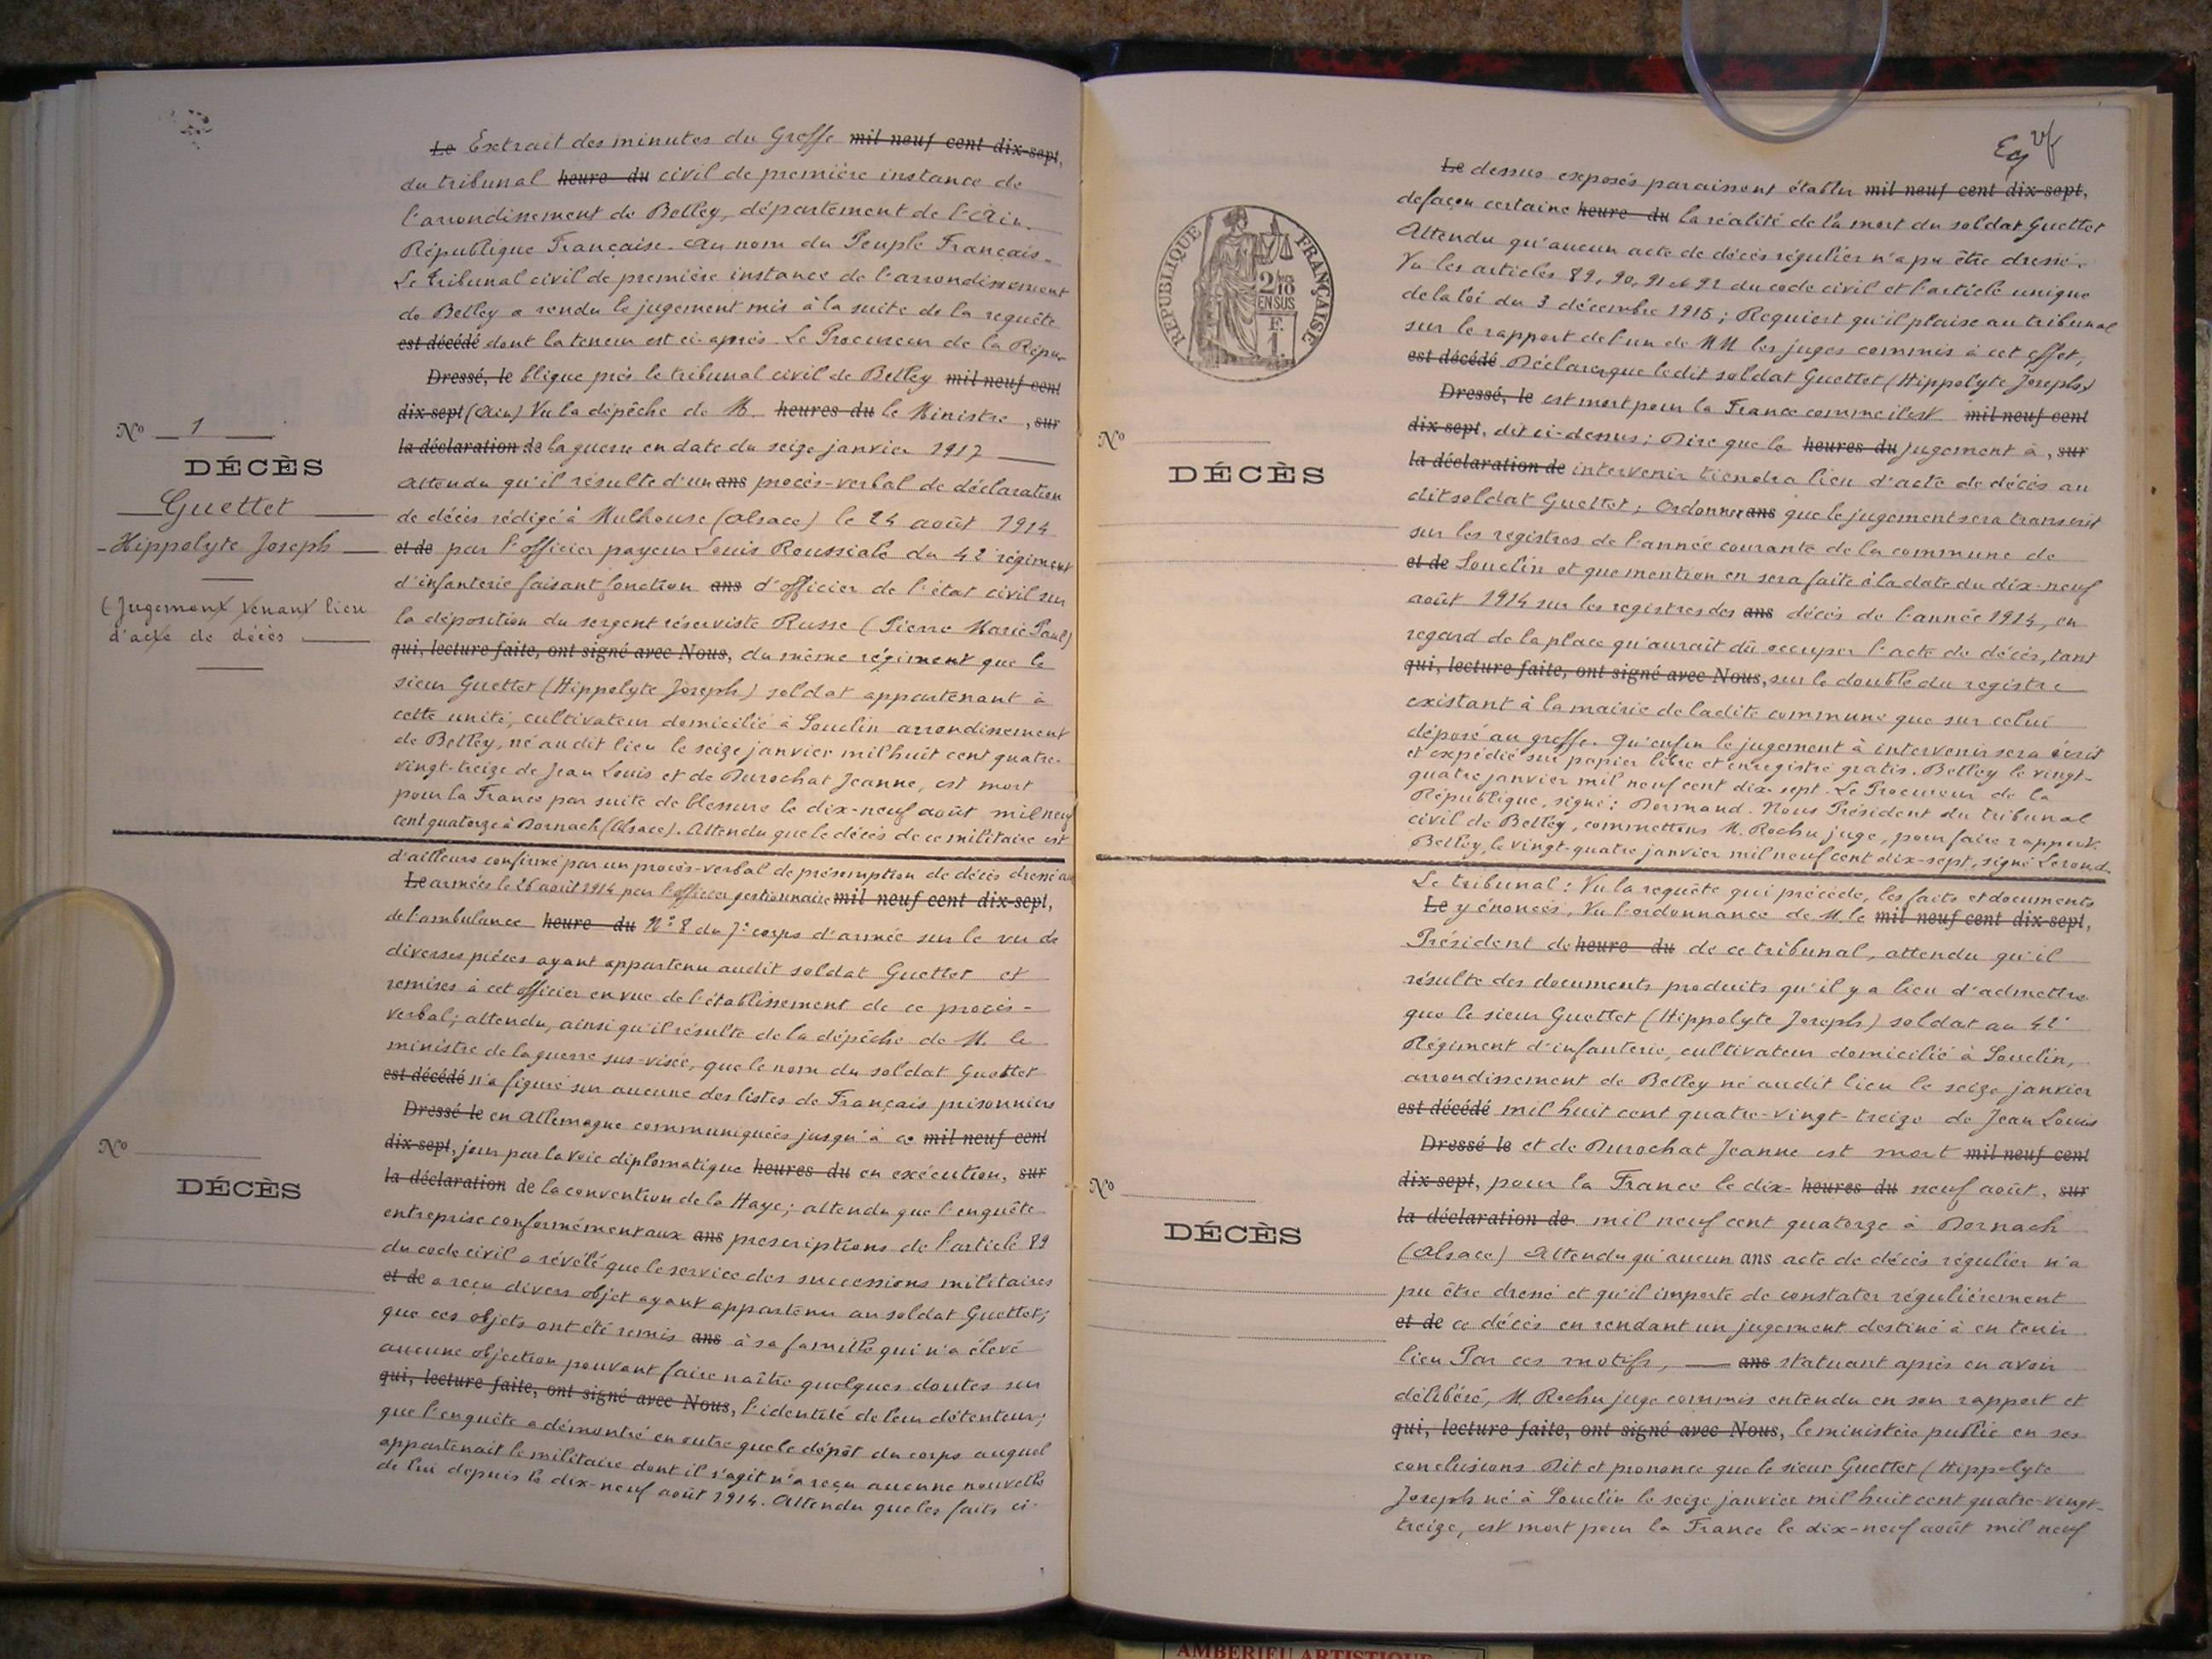 Le Extrait des minutes du Greffe mil neuf cent dix-sept,
du tribunal heure du civil de première instance de
l'arrondissement de Belley, département de l'Ain.
République Française. Au nom du Peuple Français.
Le tribunal civil de première instance de l'arrondissement
de Belley a rendu le jugement mis à la suite de la requête
est décédé dont la teneur est ci-après. Le Procureur de la Répu-
Dressé, le blique près le tribunal civil de Belley mil neuf cent
dix-sept (Ain) Vu la dépêche de M. heures du le Ministre, sur
la déclaration de la guerre en date du seize janvier 1917
Attendu qu'il résulte d'un ans procès-verbal de déclaration
de décès rédigé à Mulhouse (Alsace) le 24 août 1914
et de par l'officier payeur Louis Roussialé du 42e régiment
d'infanterie faisant fonction ans d'officier de l'état civil sur
la déposition du sergent réserviste Russe (Pierre Marie Paul)
qui, lecture faite, ont signé avec Nous, du même régiment que le
sieur Guettet (Hippolyte Joseph) soldat appartenant à
cette unité, cultivateur domicilié à Souclin arrondissement
de Belley, né audit lieu le seize janvier mil huit cent quatre-
vingt-treize de Jean Louis et de Durochat Jeanne, est mort
pour la France par suite de blessure le dix-neuf août mil neuf
cent quatorze à Dornach (Alsace). Attendu que le décès de ce militaire est
No 1
DÉCÈS
Guettet
Hippolyte Joseph
(Jugement tenant lieu
d'acte de décès
d'ailleurs confirmé par un procès-verbal de présomption de décès dressé aux
Le armées le 26 août 1914 par l'officier gestionnaire mil neuf cent dix-sept,
de l'ambulance heure du No 8 du 7e corps d'armée sur le vu de
diverses pièces ayant appartenu audit soldat Guettet et
remises à cet officier en vue de l'établissement de ce procès-
verbal; attendu, ainsi qu'il résulte de la dépêche de M. le
ministre de la guerre sus-visée, que le nom du soldat Guettet
est décédé n'a figuré sur aucune des listes de Français prisonniers
Dressé le en Allemagne communiquées jusqu'à ce mil neuf cent
dix-sept, jour par la voie diplomatique heures du en exécution, sur
la déclaration de la convention de la Haye; attendu que l'enquête
entreprise conformément aux ans prescriptions de l'article 89
du code civil a révélé que le service des successions militaires
et de a reçu divers objet ayant appartenu au soldat Guettet;
que ces objets ont été remis ans à sa famille qui n'a élevé
aucune objection pouvant faire naître quelques doutes sur
qui, lecture faite, ont signé avec Nous, l'identité de leur détenteur;
que l'enquête a démontré en outre que le dépôt du corps auquel
appartenait le militaire dont il s'agit n'a reçu aucune nouvelle
de lui depuis le dix-neuf août 1914. Attendu que les faits ci-
No
DÉCÈS
REPUBLIQUE FRANÇAISE
2/10
EN SUS
F.
1
Le dessus exposés paraissent établir mil neuf cent dix-sept,
de façon certaine heure du la réalité de la mort du soldat Guettet
Attendu qu'aucun acte de décès régulier n'a pu être dressé.
Vu les articles 89, 90, 91 et 92 du code civil et l'article unique
de la loi du 3 décembre 1915; Requiert qu'il plaise au tribunal
sur le rapport de l'un de MM les juges commis à cet effet,
est décédé Déclarer que ledit soldat Guettet (Hippolyte Joseph)
Dressé, le est mort pour la France comme il est mil neuf cent
dix-sept, dit ci-dessus; Dire que le heures du jugement à, sur
la déclaration de intervenir tiendra lieu d'acte de décès au
dit soldat Guettet; Ordonner ans que le jugement sera transcrit
sur les registres de l'année courante de la commune de
et de Souclin et que mention en sera faite à la date du dix-neuf
août 1914 sur les registres des ans décès de l'année 1914, en
regard de la place qu'aurait dû occuper l'acte de décès, tant
qui, lecture faite, ont signé avec Nous, sur le double du registre
existant à la mairie de ladite commune que sur celui
déposé au greffe. Qu'enfin le jugement à intervenir sera écrit
et expédié sur papier libre et enregistré gratis. Belley le vingt-
quatre janvier mil neuf cent dix-sept. Le Procureur de la
République, signé: Dormand. Nous Président du tribunal
civil de Belley, commettons M. Rochu juge, pour faire rapport.
Belley, le vingt-quatre janvier mil neuf cent dix-sept, signé Lerond.
No
DÉCÈS
Le tribunal: Vu la requête qui précède, les faits et documents
Le y énoncés, Vu l'ordonnance de M. le mil neuf cent dix-sept,
Président de heure du de ce tribunal, attendu qu'il
résulte des documents produits qu'il y a lieu d'admettre
que le sieur Guettet (Hippolyte Joseph) soldat au 42e
Régiment d'infanterie, cultivateur domicilié à Souclin,
arrondissement de Belley né audit lieu le seize janvier
est décédé mil huit cent quatre-vingt-treize de Jean Louis
Dressé le et de Durochat Jeanne est mort mil neuf cent
dix-sept, pour la France le dix- heures du neuf août, sur
la déclaration de mil neuf cent quatorze à Dornach
(Alsace) Attendu qu'aucun ans acte de décès régulier n'a
pu être dressé et qu'il importe de constater régulièrement
et de ce décès en rendant un jugement destiné à en tenir
lieu Par ces motifs, ans statuant après en avoir
délibéré, M. Rochu juge commis entendu en son rapport et
qui, lecture faite, ont signé avec Nous, le ministère public en ses
conclusions. Dit et prononce que le sieur Guettet (Hippolyte
Joseph né à Souclin le seize janvier mil huit cent quatre-vingt-
treize, est mort pour la France le dix-neuf août mil neuf
No
DÉCÈS
AMBERIEU ARTISTIQUE